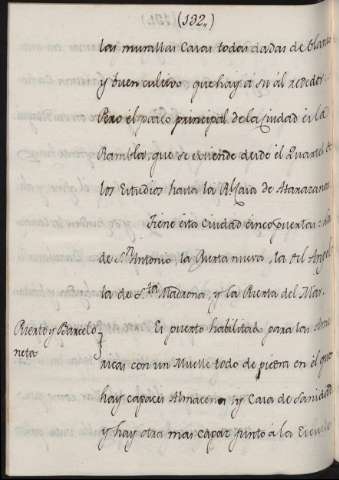 (192,,)
las murallas Casas todas dadas de blanco
y buen cultivo que hay á su al rededor.
Pero el paseo principal de la Ciudad es la
Rambla, que se extiende desde el Quartel de
los Estudios hasta la Rl. Casa de Atarazanas
Tiene esta Ciudad cinco puertas: la
de Sn. Antonio, la Puerta nueva, la del Angel
la de Sta. Madrona, y la Puerta del Mar.
Puerto y Barcelo
neta
Es puerto habilitado para las Ame
ricas con un Muelle todo de piedra en el que
hay capaces Almacenes y Casa de Sanidad
y hay otra mas capaz junto á la Escuela